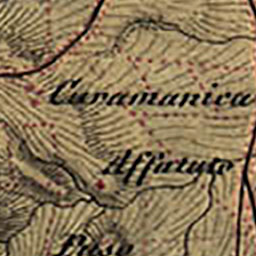 Caramanica
Affatato
Piano